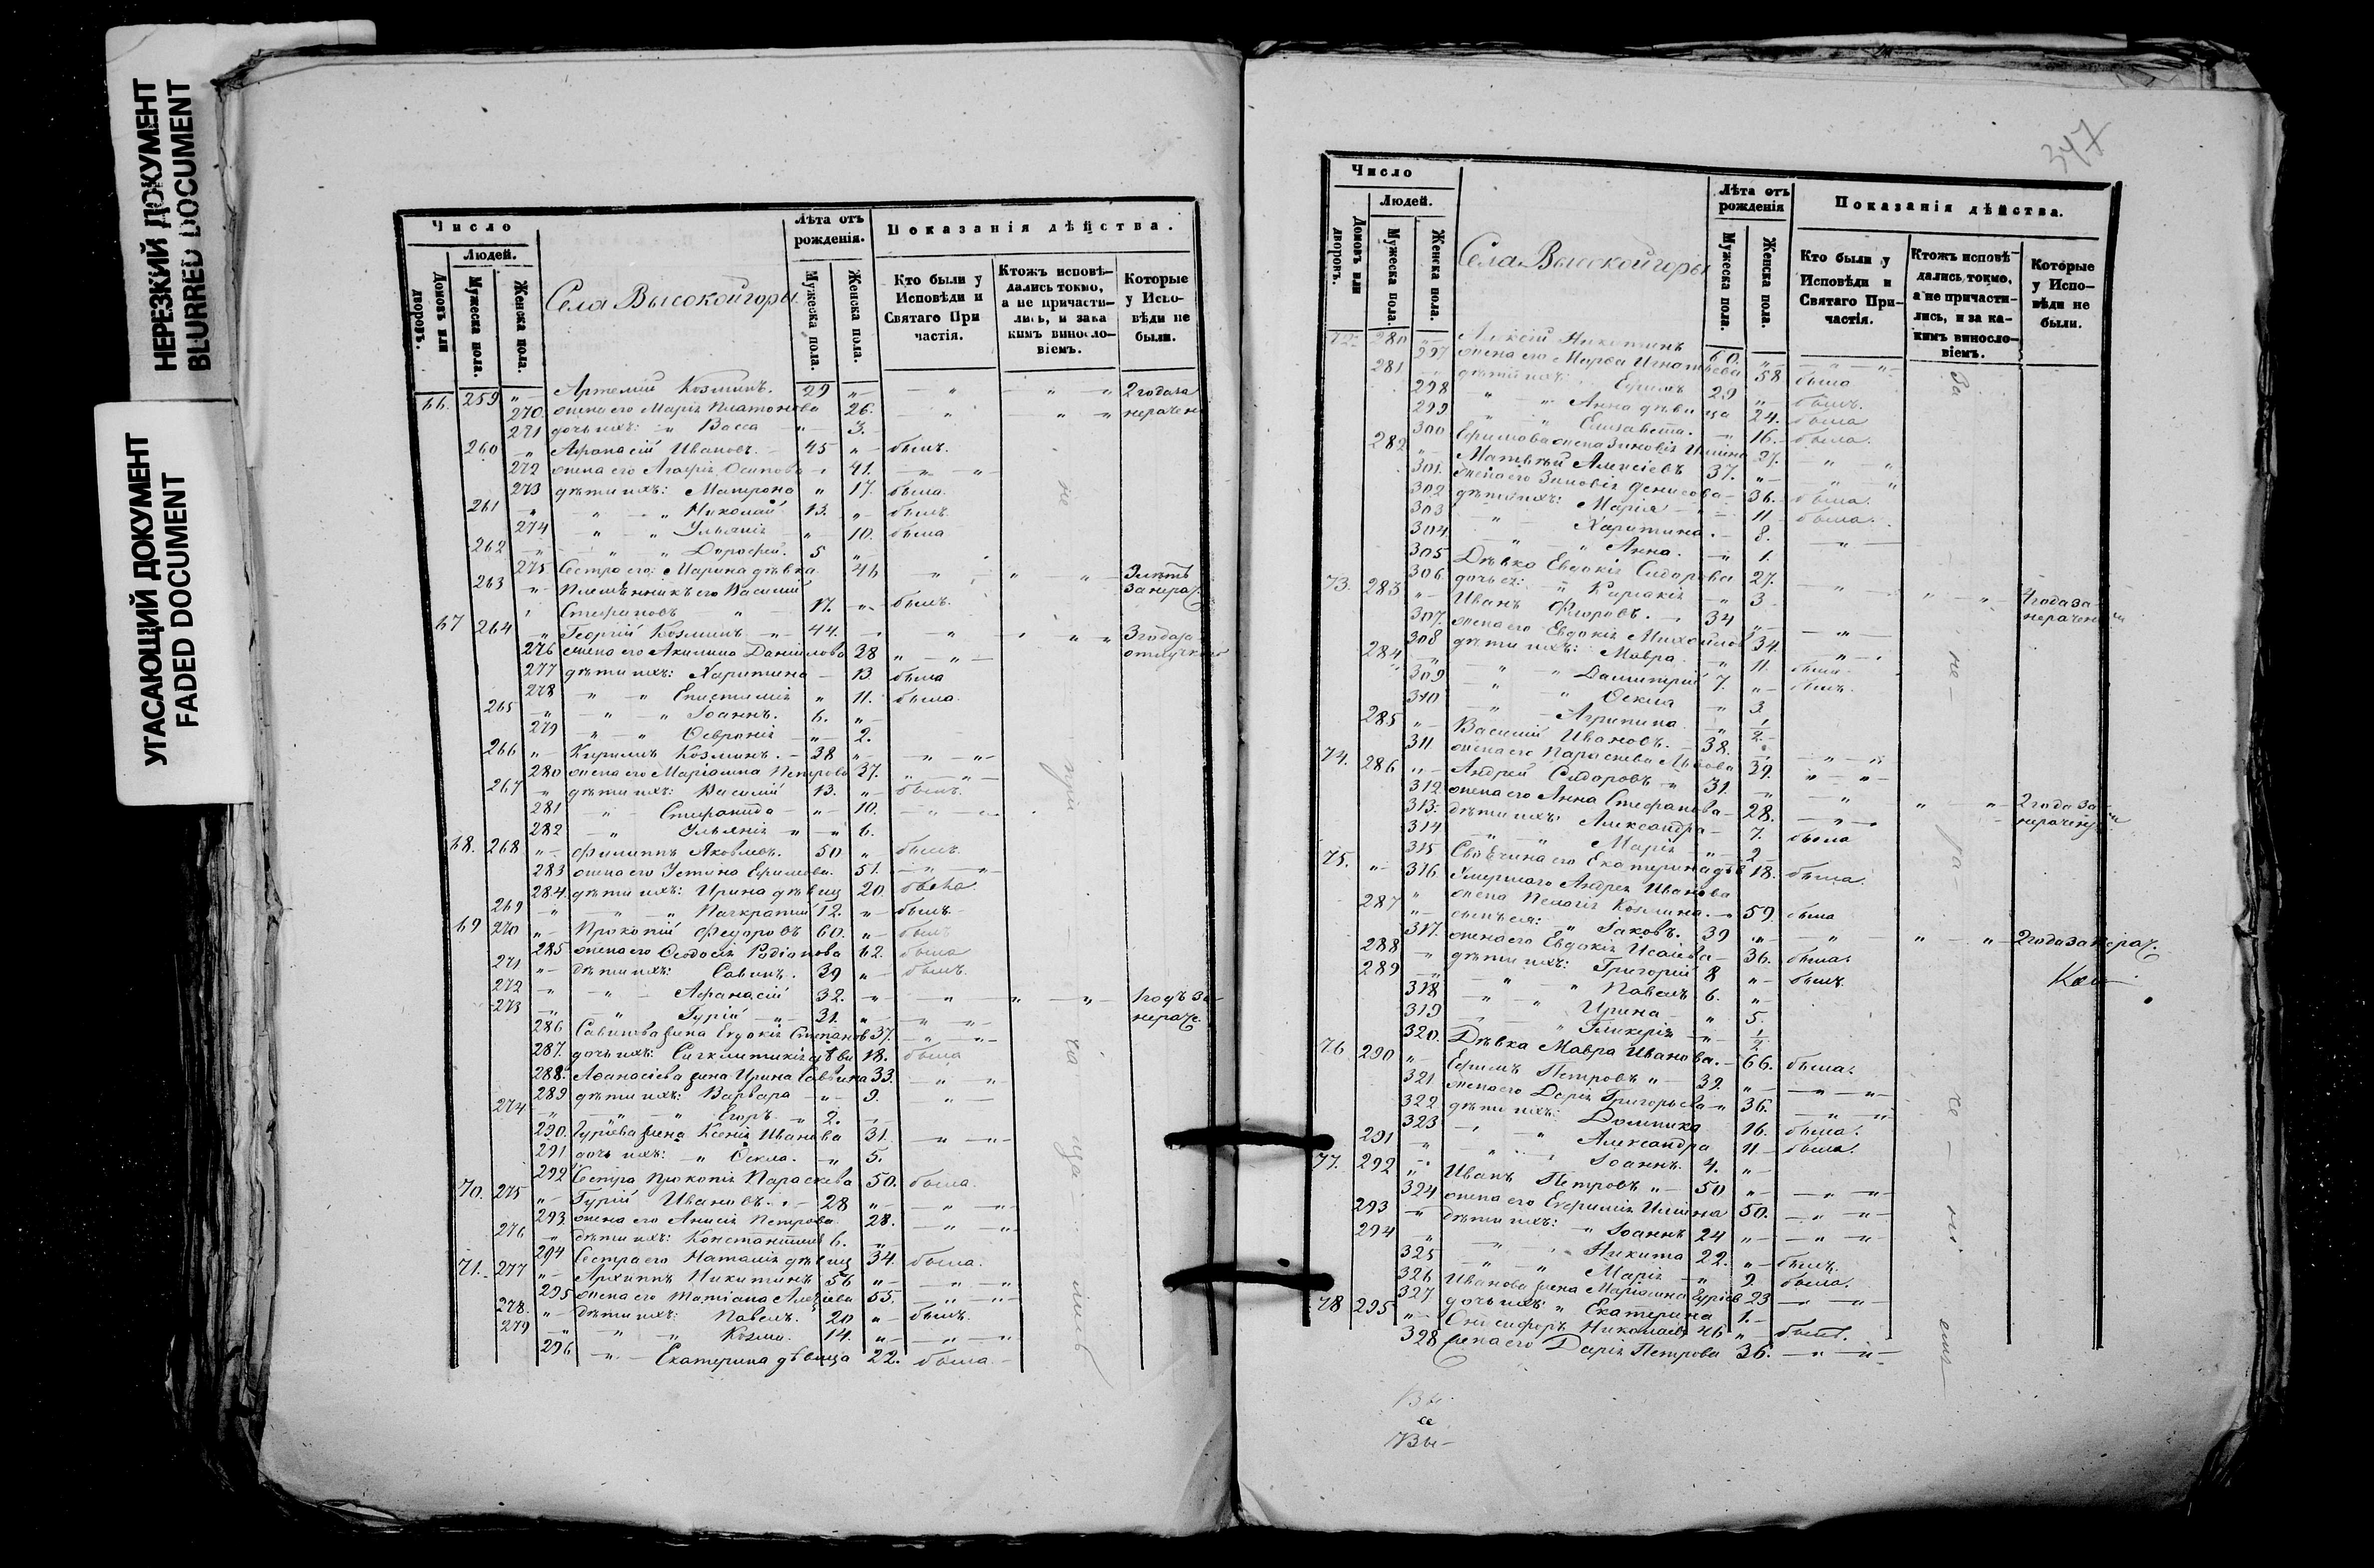 НЕРЕЗКИЙ ДОКУМЕНТ
BLURRED DOCUMENT
УГАСАЮЩИЙ ДОКУМЕНТ
FADED DOCUMENT
Число
Людей.
Домовъ или дворовъ.
Мужеска пола.
Женска пола.
Села Высокойгоры
Лѣта отъ рожденія.
Мужеска пола.
Женска пола.
Показанія дѣйства.
Кто были у Исповѣди и Святаго При частія.
Ктожъ исповѣ- дались токмо, а не причасти- лись, и зака кимъ виносло- віемъ.
Которые у Испо- вѣди не были.
66. 259 „ Артемій Козминъ. 29 „ — „ „ „ 2 года за
270. жена его Марія Платонова 26. „ „ „ нерачен
271 дочь ихъ: „ Васса „ 3.
260 „ Афанасій Ивановъ. 45 „ былъ.
272 жена его Агафія Осипова 41. — „ — „
273 дѣти ихъ: Матрона „ 17. была.
261 „ „ „ Николай 13. „ былъ.
274 „ „ Ульянія „ 10. была
262 „ „ „ Дорофей. 5 „
275 Сестра его: Марина дѣвка 46 „ „ „ 3 лѣтъ
263 „ Племѣнникъ его Василий за нерач.
Стефановъ „ 17. „ былъ.
67 264 „ Георгій Козминъ „ 44. „ „ „ 3 года за
276 жена его Акилина Данилова 38 „ „ отлучкою
277 дѣти ихъ: Харитина 13 была
278 „ „ Епистимія „ 11. была.
265 „ „ „ Іоаннъ. 6. „
279 „ „ Февронія „ 2.
266 „ Кириллъ Козминъ. 38 „ „ „
280 жена его Маріамна Петрова 37. „ „
267 „ дѣти ихъ: Василий 13. „ былъ.
281 „ Стефанида „ 10. „ „
282 „ Ульянія „ „ 6.
68. 268 „ Филиппъ Яковлевъ. 50 „ былъ.
283 жена его Устина Ефимова. 51. „ „
284. дѣти ихъ: Ирина дѣвиц 20 была.
269 „ „ „ Панкратий 12. „ былъ.
69 270 „ Прокопій Федоровъ 60. „ былъ
285 жена его Феодосія Родіонова 62. была
271 „ дѣти ихъ: Савинъ. 39 „ былъ.
272 „ „ Афанасій 32. „ „ „ „ 1 годъ за
273 „ „ Гурій „ 31. „ „ „ нераче.
286 Савинова жена Евдокія Степанов 37. „ „
287. дочь ихъ: Сигклитикія дѣви 18. была
288. Афанасіева жена Ирина Савѣина 33. „ „
289 дѣти ихъ: Варвара „ 9. „
274 „ „ „ Егоръ „ 2.
290. Гуріева жена Ксенія Иванова 31. „ „
291 дочь ихъ: „ Фекла. „ 5.
292 Сестра Прокопія Параскева 50. была.
70. 275 „ Гурій Ивановъ. 28 „ „ „
293 жена его Анисія Петрова 28. „ „
276 „ дѣти ихъ: Константинъ 6. „
294 Сестра его Наталія дѣвиц 34. была.
71. 277 „ Архиппъ Никитинъ 56 „ „ „
295 жена его Татіана Алексѣева 55. „ „
278. „ дѣти ихъ: Павелъ. 20 „ былъ.
279 „ „ „ Козма. 14. „ „ „
296 „ Екатерина дѣвица 22. была.
347
Число
Людей.
Домовъ или дворовъ.
Мужеска пола.
Женска пола.
Села Высокойгоры
Лѣта отъ рожденія
Мужеска пола.
Женска пола.
Показанія дѣйства.
Кто были у Исповѣди и Святаго При- частія.
Ктожъ исповѣ- дались токмо, а не причасти- лись, и за ка- кимъ винословіемъ.
Которые у Испо- вѣди не были.
72. 280 „ Алексій Никитинъ 60. „ „ „
297 жена его Марѳа Игнатьева 58 была
281 „ дѣти ихъ: Ефимъ 29 „ былъ.
298 „ „ Анна дѣвица 24. была
299 „ „ Елисавета. „ 16. была.
300 Ефимова жена Зиновія Ильина 27. „ „
282 „ Матвѣй Алексіевъ 37. „ „ „
301. жена его Зиновія Денисова 36. была.
302 дѣти ихъ: Марія „ 11 была.
303 „ Харитина. 8. „
304. „ „ Анна. „ 1.
305 Дѣвка Евдокія Сидорова 27. „
306. дочь ея: „ Киріакія „ 3 „ „ „ 4 года за
73. 283 „ Иванъ Флоровъ. 34 „ „ нерачен
307. жена его Евдокія Михайлов 34. „
308 дѣти ихъ: Мавра. „ 11. была.
284 „ „ „ Димитрій 7. „ былъ.
309 „ „ Фекла „ 3
310 „ Агрипина „ 1/2
285 „ Василий Ивановъ. 38. „ „ „
311 жена его Параскева Львова 39. „ „
74. 286 „ Андрей Сидоровъ „ 31. „ „ „ „ 2 года за
312 жена его Анна Стефанова 28. „ нерачен
313. дѣти ихъ: Александра 7. была
314 „ „ Марія „ 2
315 Екатерина дѣв 18. была.
75. „ 316 Умершаго Андрея Иванова
жена Пелагія Козмина. 59. была
287 „ сынъ ея: „ Іаковъ. 39 „ „ „ „ 2 года за нерач.
317. жена его Евдокія Исаіева 36. была.
288 „ дѣти ихъ: Григорий 8 „ былъ.
289 „ „ „ Павелъ 6. „
318 „ „ Ирина „ 5.
319 „ „ Гликерія „ 1/2
320. Дѣвка Мавра Иванова. 66. была.
76 290 „ Ефимъ Петровъ „ 39. „ „ „
321 жена его Дарія Григорьева „ 36. „ „
322 дѣти ихъ: Домника 16. была.
323 „ „ Александра 11 была.
291 „ „ „ Іоаннъ. 4. „
77. 292 „ Иванъ Петровъ „ 50 „ „ „
324 жена его Евфимія Ильина 50. „ „
293 „ дѣти ихъ: „ Іоаннъ 24 „ „ „
294 „ „ „ Никита 22. „ былъ.
325 „ „ Марія „ 9. была.
326 Иванова жена Маріамна Гуріев 23 „ „
327 дочь ихъ: „ Екатерина 1.
78 295 „ Онисифоръ Николаевъ 46 „ былъ.
328 жена его Дарія Петрова 36. „ „
Вы
се
Вы-